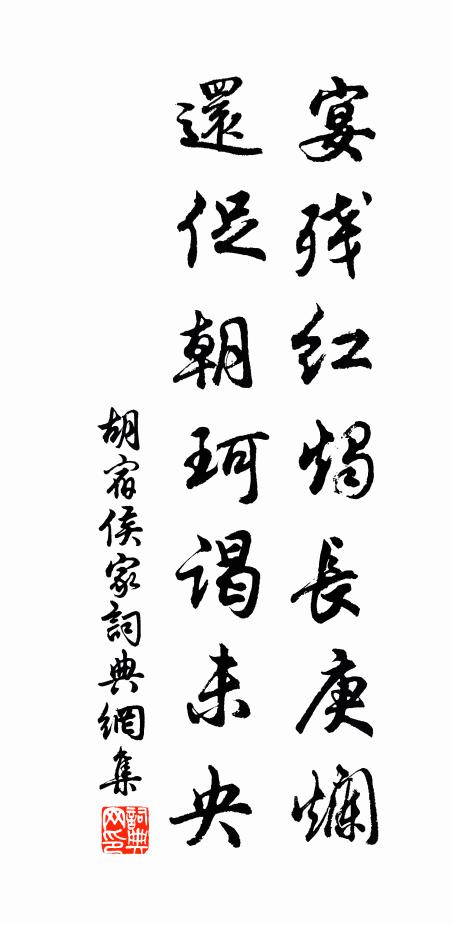 宴残紅燭長庚爛
還促朝珂謁未央
胡宿侯家詞典網集
詞典网印